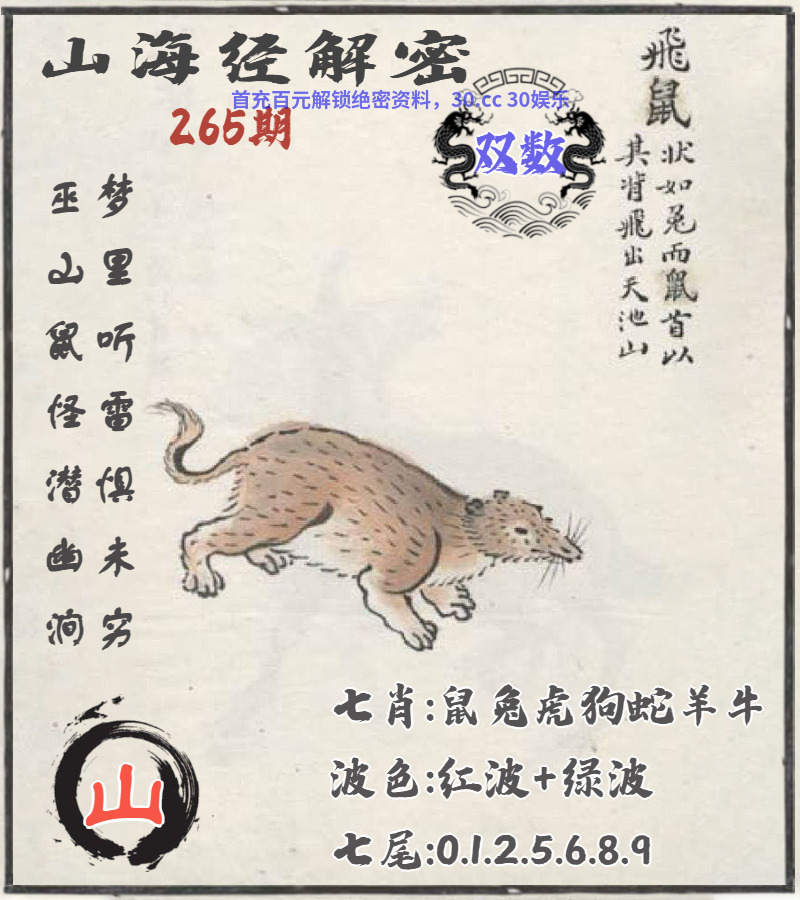 山海经解密
首充百元解锁绝密资料，30.cc 30娱乐
265期
双数
飛鼠
状如兎而鼠首以
其背飛出天池山
梦里听雷惧未穷
巫山鼠怪潜幽涧
七肖:鼠兔虎狗蛇羊牛
波色:红波+绿波
七尾:0.1.2.5.6.8.9
山